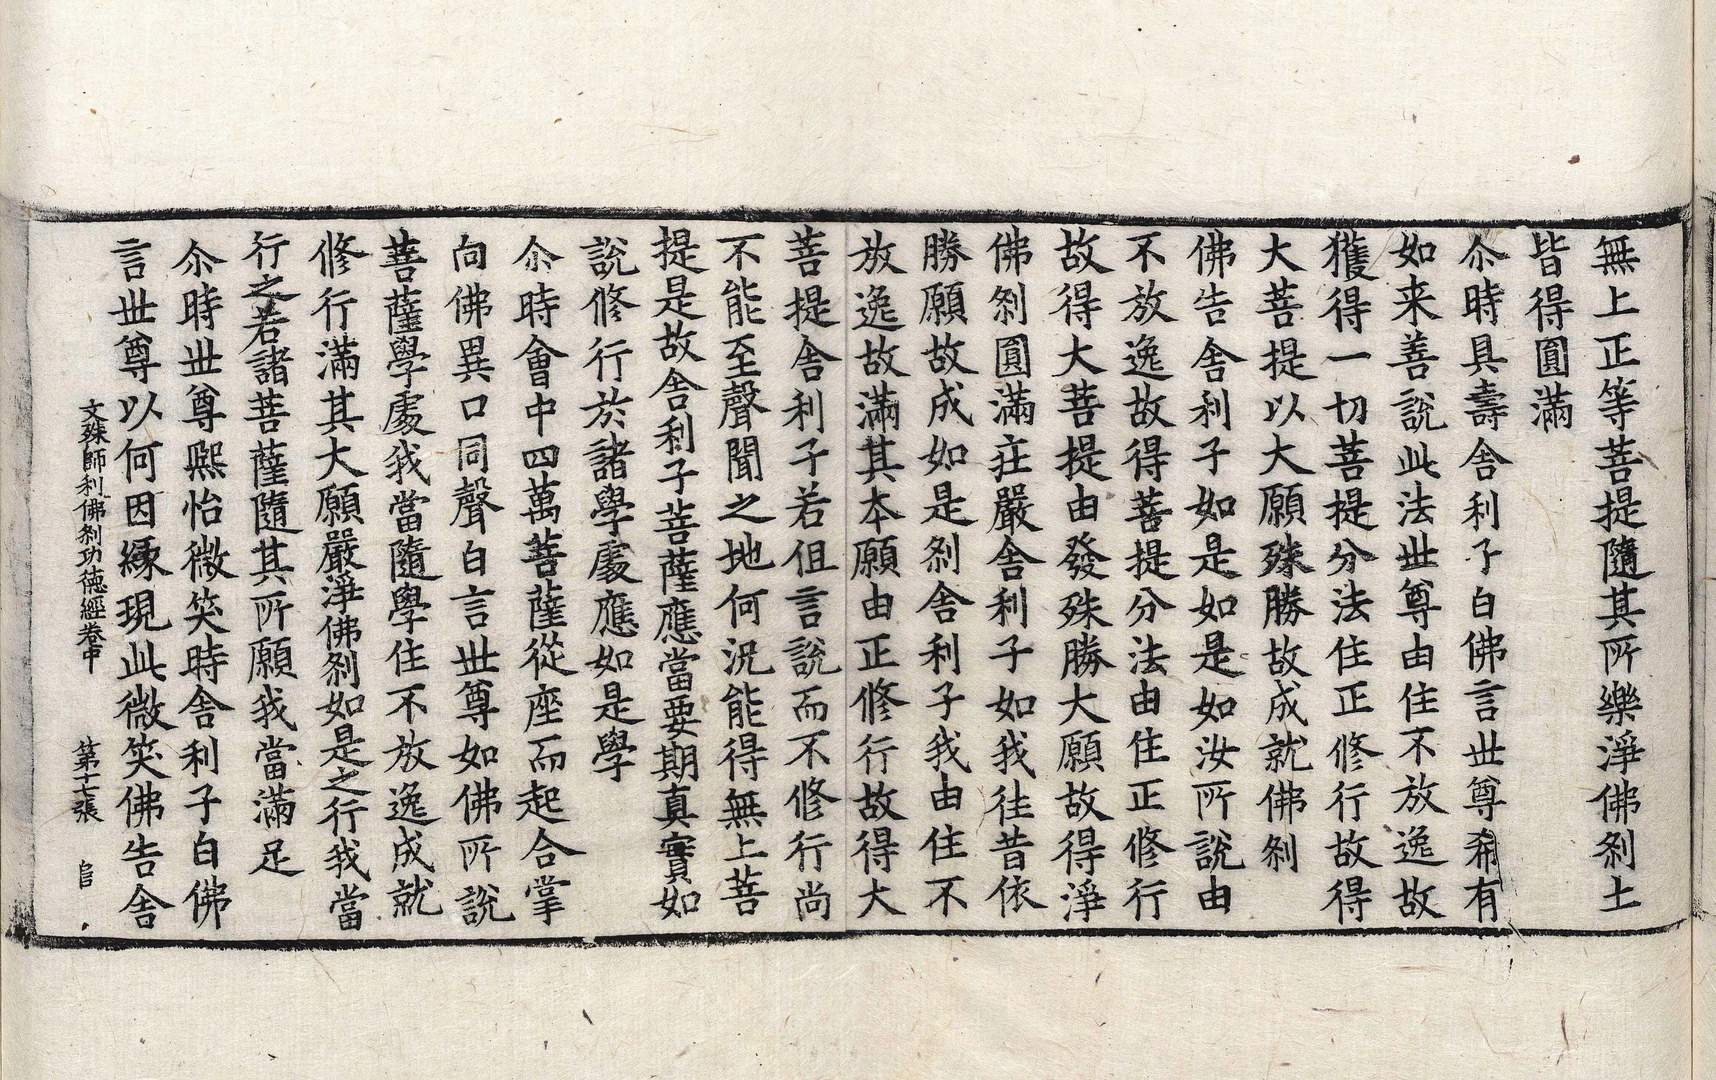 無上正等菩提隨其所樂淨佛刹土
皆得圓滿
尒時具壽舍利子白佛言世尊希有
如来善說此法世尊由住不放逸故
獲得一切菩提分法住正修行故得
大菩提以大願殊勝故成就佛刹
佛告舍利子如是如是如汝所說由
不放逸故得菩提分法由住正修行
故得大菩提由發殊勝大願故得淨
佛刹圓滿莊嚴舍利子如我往昔依
勝願故成如是刹舍利子我由住不
放逸故滿其本願由正修行故得大
菩提舍利子若伹言說而不修行尚
不能至聲聞之地何況能得無上菩
提是故舍利子菩薩應當要期真實如
說修行於諸學處應如是學
尒時會中四萬菩薩從座而起合掌
向佛異口同聲白言世尊如佛所說
菩薩學處我當隨學住不放逸成就
修行滿其大願嚴淨佛刹如是之行我當
行之若諸菩薩隨其所願我當滿足
尒時世尊熙怡微笑時舍利子白佛
言世尊以何因緣現此微笑佛告舍
文殊師利佛刹功德經卷中　第十七張　官